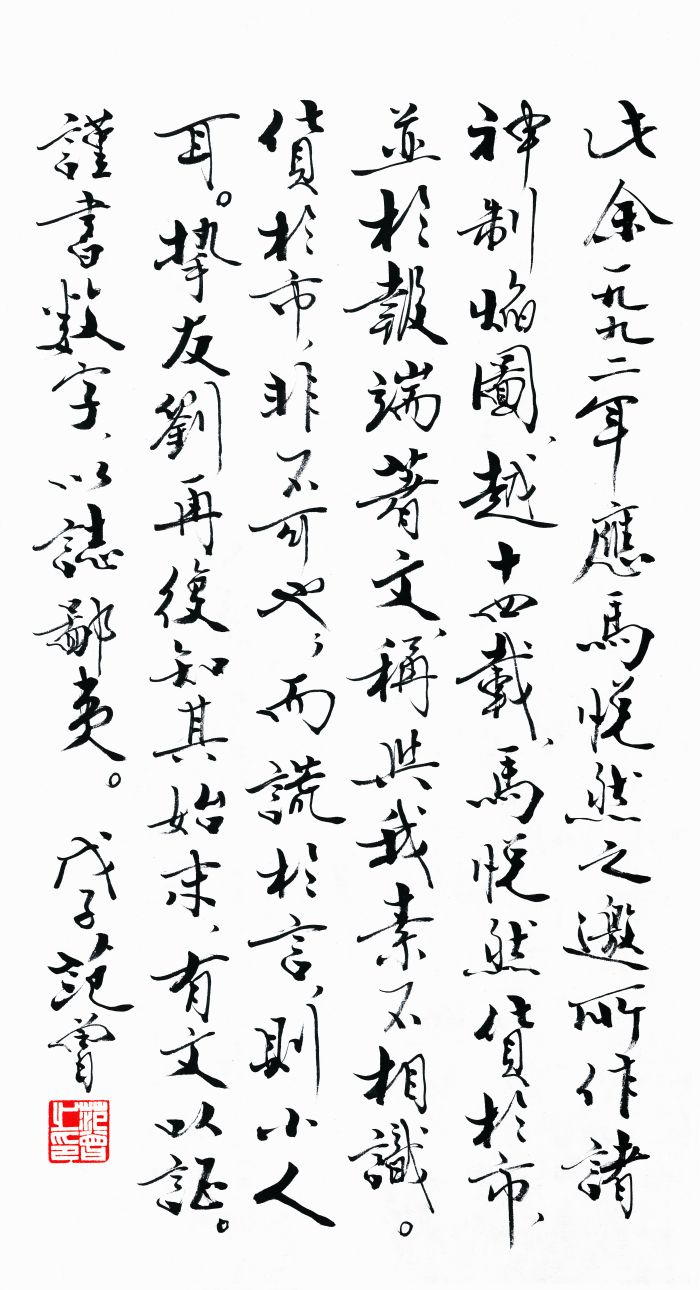 此余一九九二年應馬悅然之邀所作諸
神制焰圖、越十四載、馬悅然貨於市、
並於報端著文、稱與我素不相識。
貨於市、非不可也，而謊於言、則小人
耳。摯友劉再復知其始末、有文以証。
謹書數字、以誌鄙夷。
戊子范曾
范曾之印